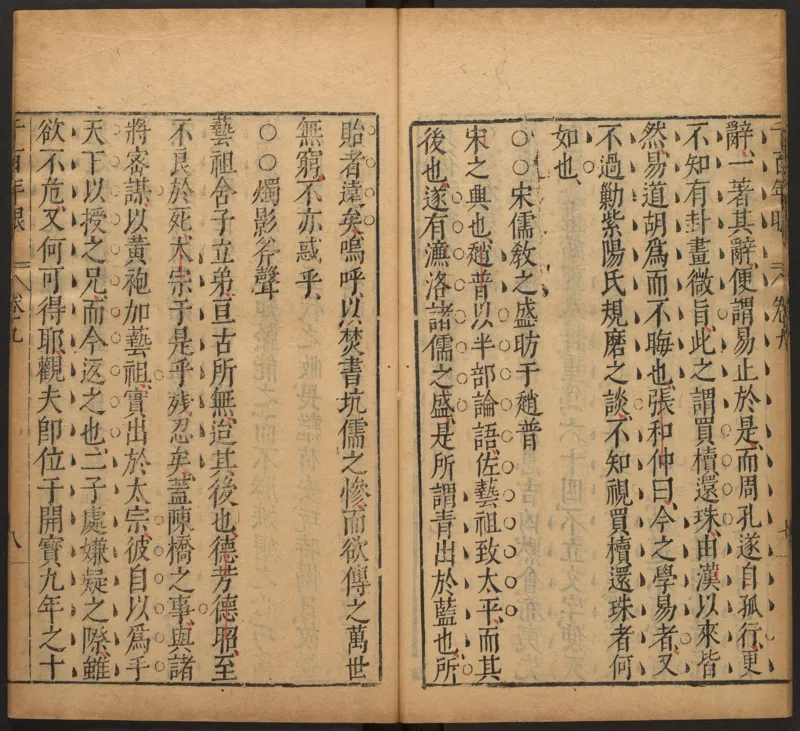 辭一著其辭便謂易止於是而周孔遂自孤行更
不知有卦畫微旨此之謂買櫝還珠由漢以來皆
然易道胡爲而不晦也張和仲曰今之學易者又
不過勦紫陽氏規磨之談不知視買櫝還珠者何
如也
○○宋儒教之盛昉于趙普
宋之興也趙普以半部論語佐藝祖致太平而其
後也遂有濂洛諸儒之盛是所謂青出於藍也所
貽者遠矣嗚呼以焚書坑儒之慘而欲傳之萬世
無窮不亦惑乎
○○燭影斧聲
藝祖舍子立弟亘古所無迨其後也德芳德昭至
不良於死太宗于是乎殘忍矣蓋陳橋之事與諸
將密謀以黃袍加藝祖實出於太宗彼自以爲手
天下以授之兄而今返之也二子處嫌疑之際雖
欲不危又何可得耶觀夫卽位于開寶九年之十
千百年眼 卷九 八